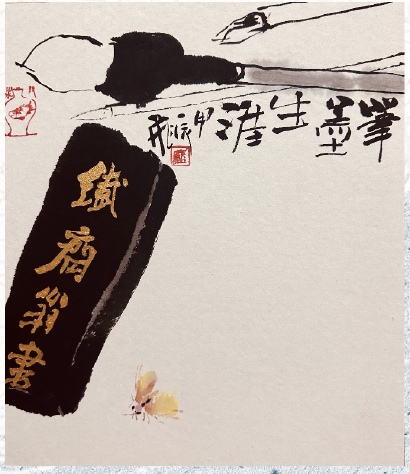 筆墨生涯
甲辰
鐵齋翁書